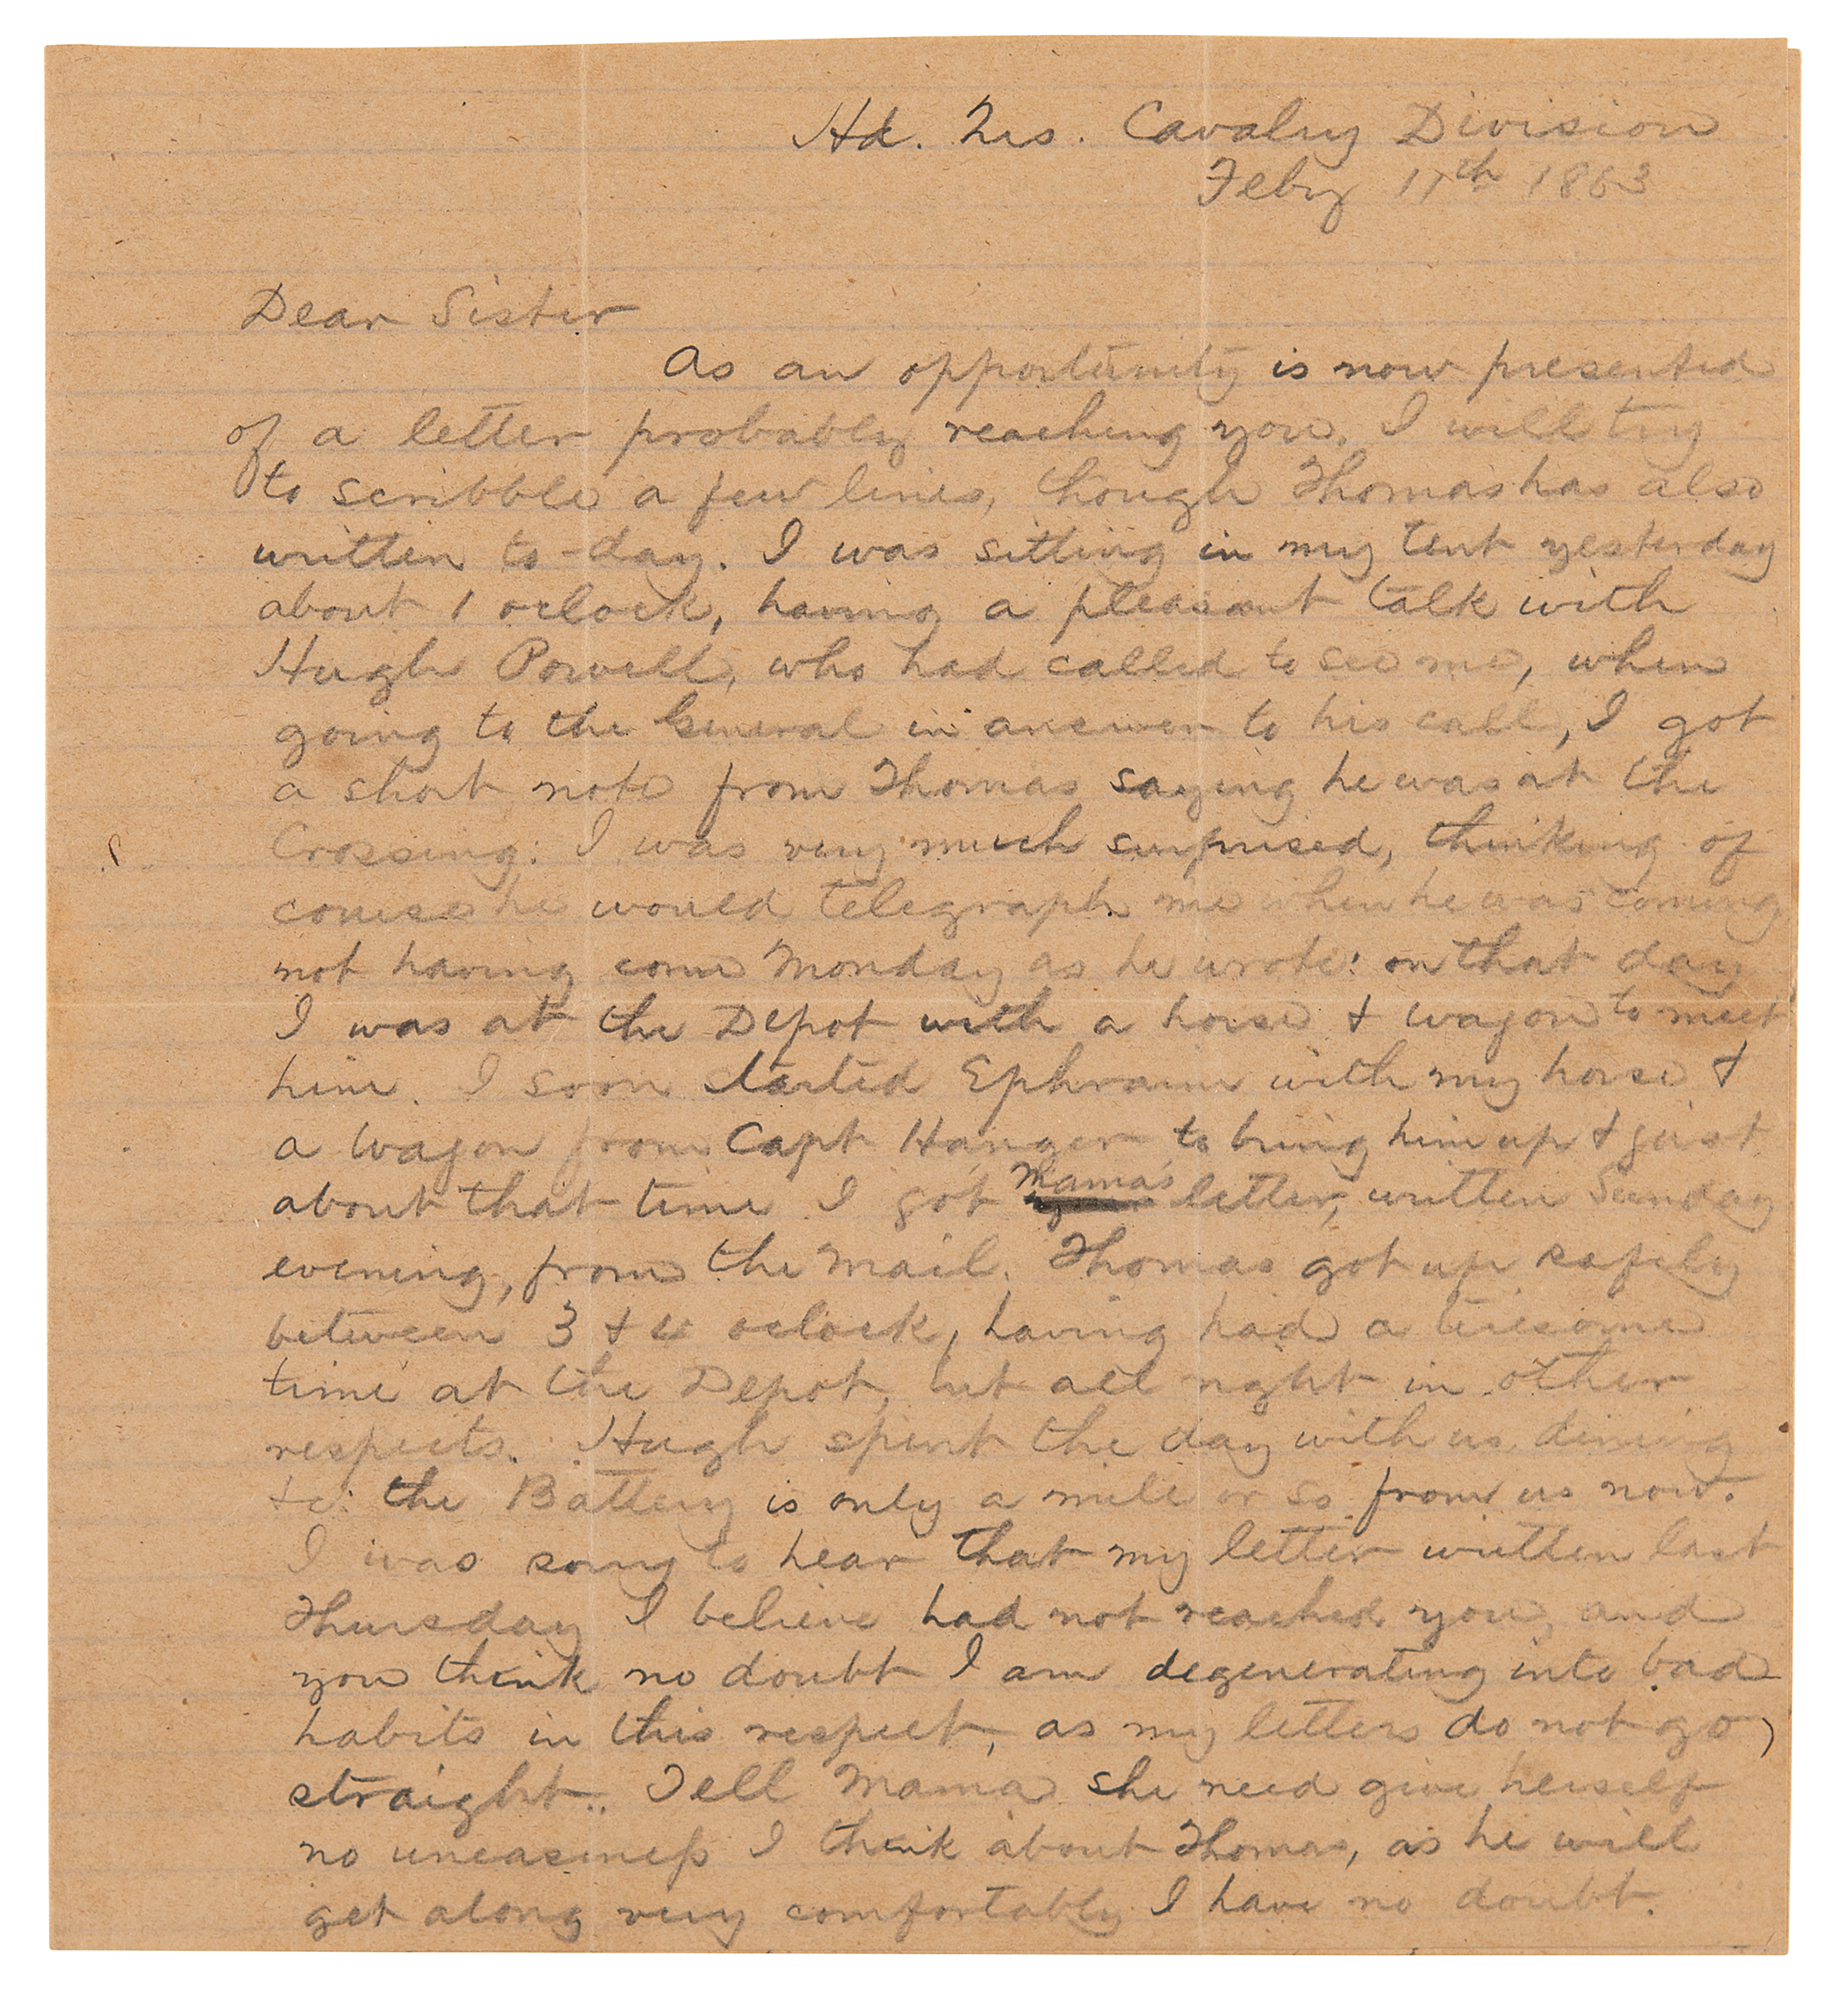 Hd. Qrs. Cavalry Division
Feby 11th 1863
Dear Sister
As an opportunity is now presented
of a letter probably reaching you, I will try
to scribble a few lines, though Thomas has also
written to-day. I was sitting in my tent yesterday
about 1 oclock, having a pleasant talk with
Hugh Powell, who had called to see me, when
going to the General in answer to his call, I got
a short note from Thomas saying he was at the
Crossing: I was very much surprised, thinking of
course he would telegraph me when he was coming
not having come Monday as he wrote: on that day
I was at the Depot with a horse & wagon to meet
him. I soon started Ephraim with my horse &
a wagon from Capt Hanger to bring him up & just
about that time I got Mama's letter, written Sunday
evening, from the mail. Thomas got up safely
between 3 & 4 oclock, having had a tiresome
time at the Depot, but all right in other
respects. Hugh spent the day with us, dining
&c: the Battery is only a mile or so from us now.
I was sorry to hear that my letter written last
Thursday I believe had not reached you, and
you think no doubt I am degenerating into bad
habits in this respect, as my letters do not go
straight. Tell Mama she need give herself
no uneasiness I think about Thomas, as he will
get along very comfortably I have no doubt.